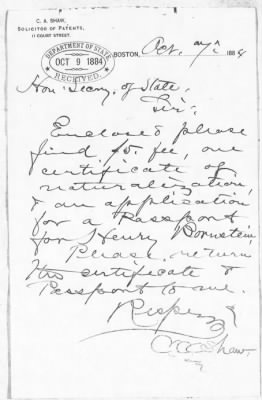 C. A. SHAW,
SOLICITOR OF PATENTS,
11 COURT STREET.
DEPARTMENT OF STATE
OCT 9 1884
RECEIVED.
BOSTON, Oct. 1884
Hon. Secry. of State,
Sir:
Enclosed please
find $5. fee, one
certificate of
naturalization,
& an application
for a Passport
for Henry Bornstein,
Please return
the certificate &
Passport to me.
Respy
C. A. Shaw.